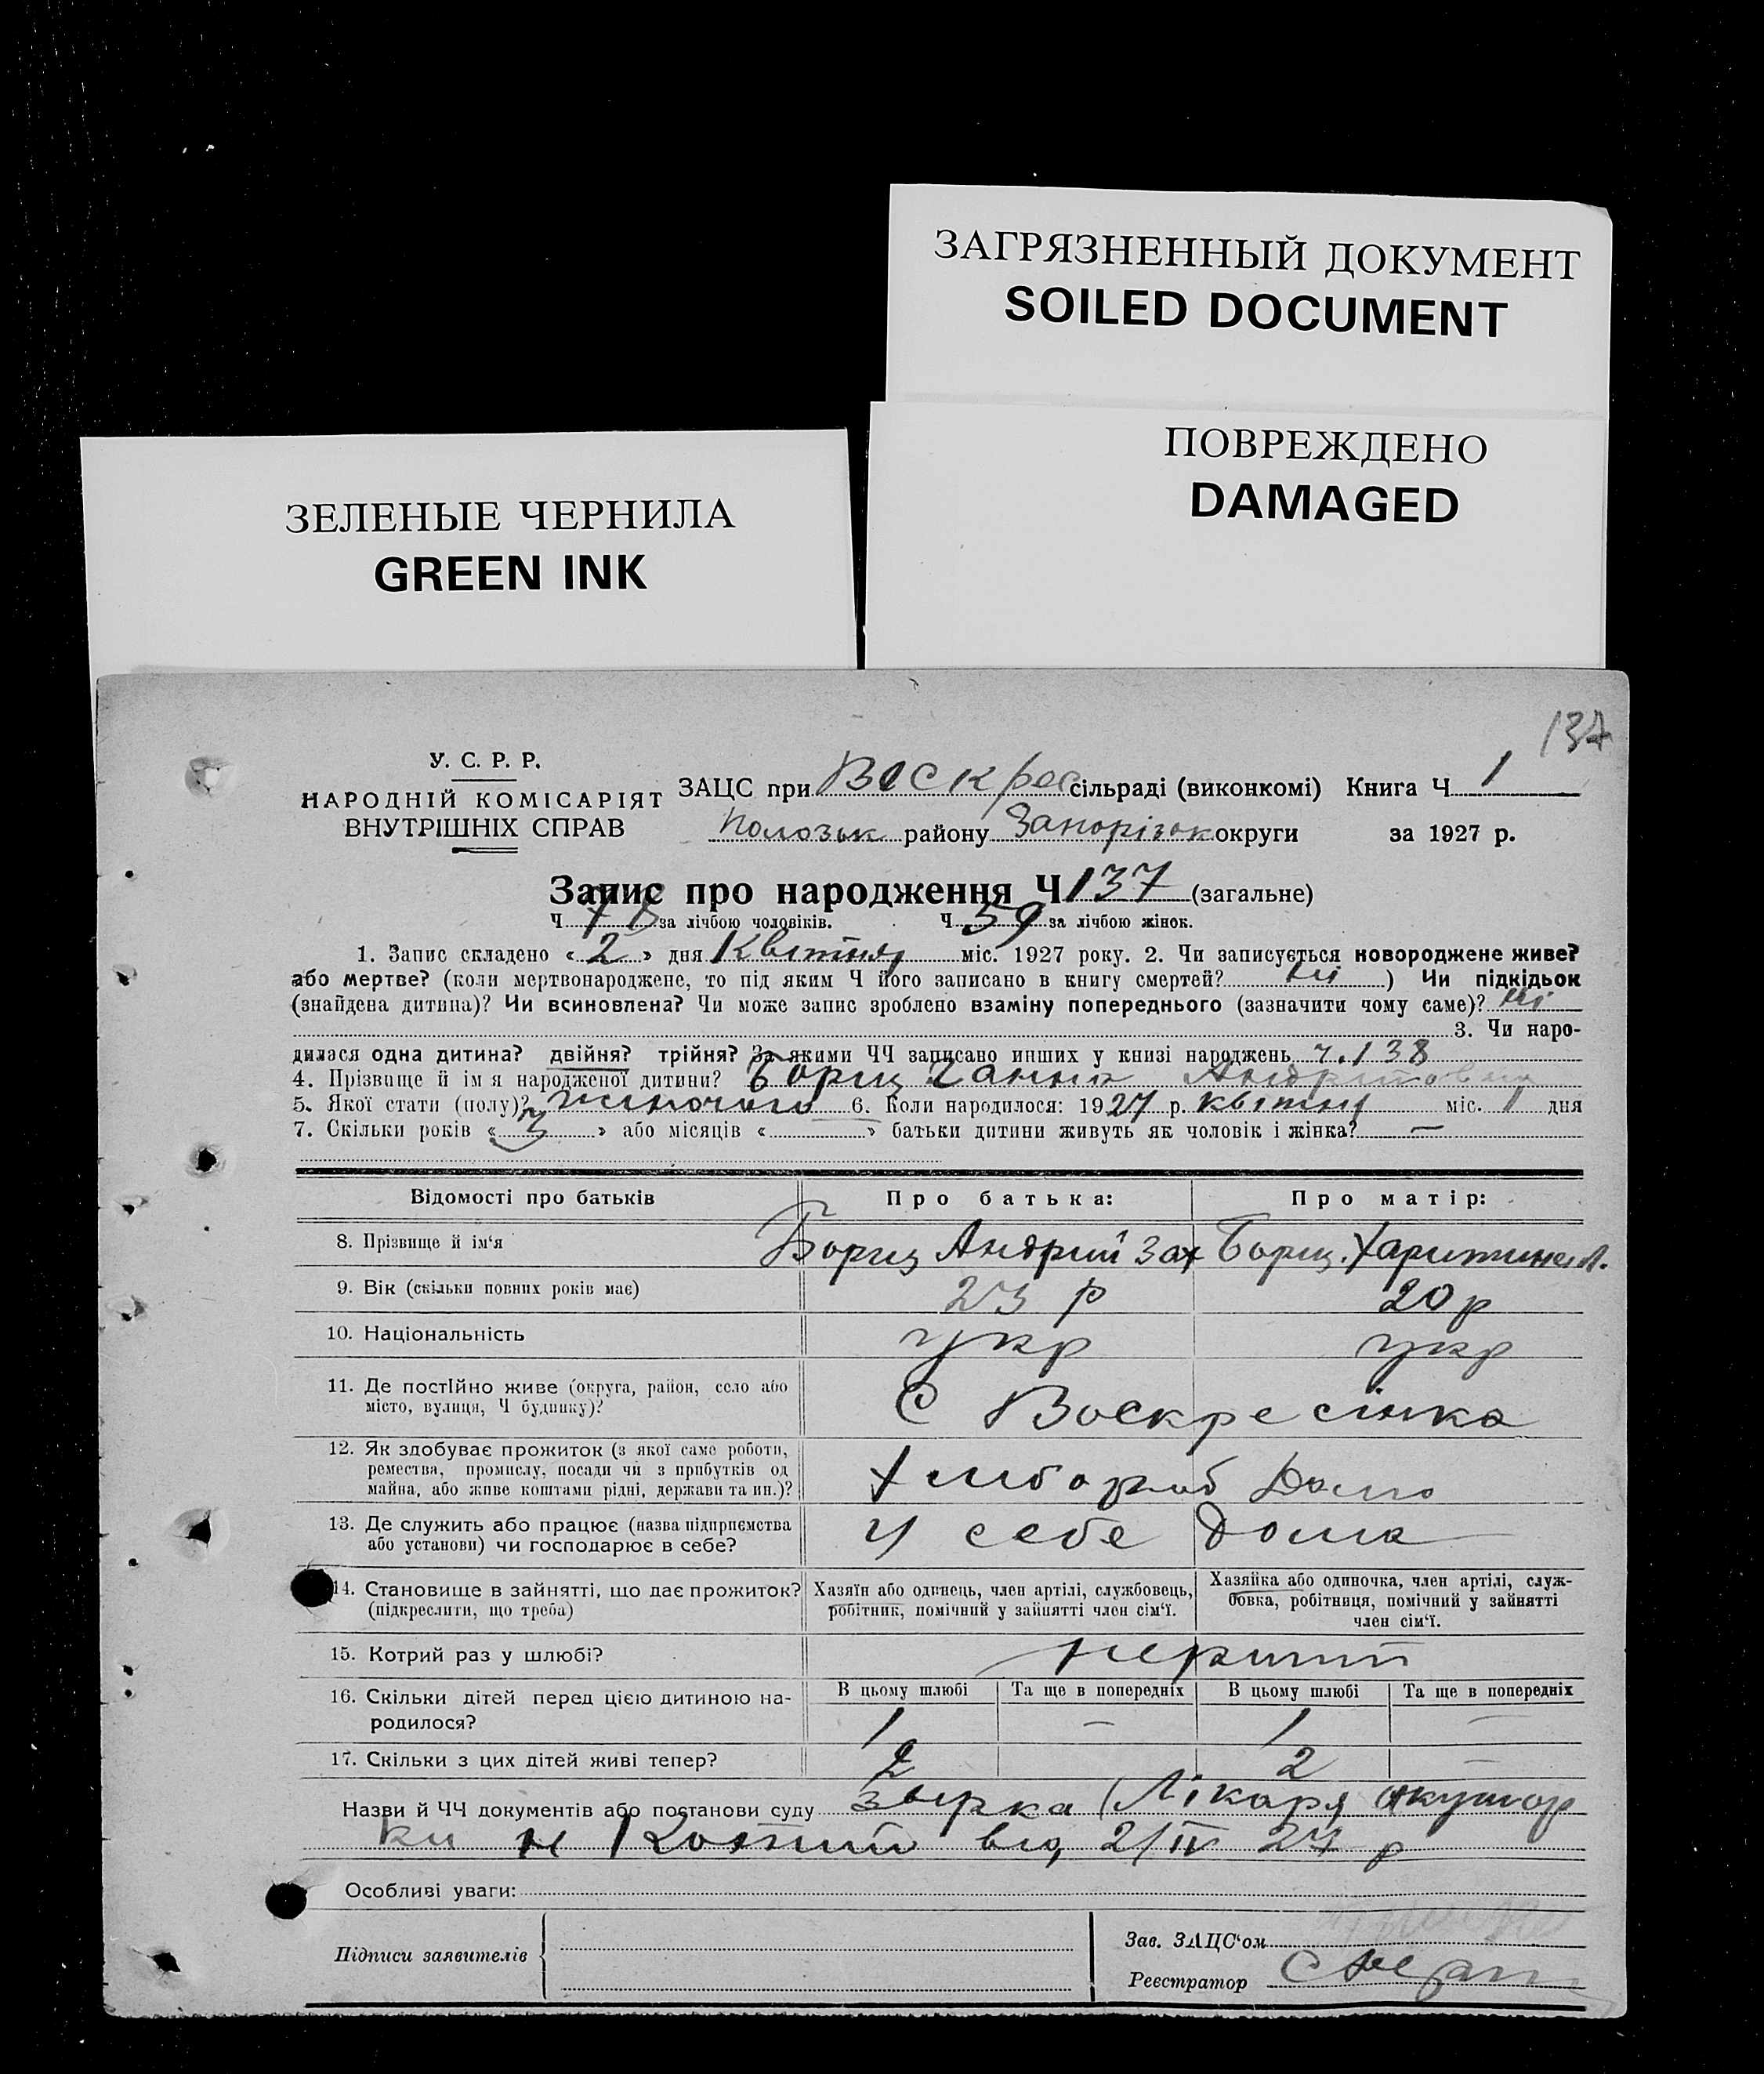 ЗАГРЯЗНЕННЫЙ ДОКУМЕНТ
SOILED DOCUMENT
ПОВРЕЖДЕНО
DAMAGED
ЗЕЛЕНЫЕ ЧЕРНИЛА
GREEN INK
137
У. С. Р. Р.
НАРОДНІЙ КОМІСАРІЯТ
ВНУТРІШНІХ СПРАВ
ЗАЦС при Воскрес сільраді (виконкомі) Книга Ч 1
Полозьк району Запорізьк округи за 1927 р.
Запис про народження Ч 137 (загальне)
Ч 78 за лічбою чоловіків. Ч 59 за лічбою жінок.
1. Запис складено « 2 » дня Квітня міс. 1927 року. 2. Чи записується новороджене живе?
або мертве? (коли мертвонароджене, то під яким Ч його записано в книгу смертей? ні ) Чи підкідьок
(знайдена дитина)? Чи всиновлена? Чи може запис зроблено взаміну попереднього (зазначити чому саме)? ні
3. Чи наро-
дилася одна дитина? двійня? трійня? За якими ЧЧ записано инших у книзі народжень ч. 138
4. Прізвище й ім я народженої дитини? Борщ Ганна Андріівна
5. Якої стати (полу)? жіночого 6. Коли народилося: 1927 р. квітня міс. 1 дня
7. Скільки років « 3 » або місяців « » батьки дитини живуть як чоловік і жінка? —
Відомості про батьків Про батька: Про матір:
8. Прізвище й ім‘я Борщ Андрий Зах Борщ Харитина
9. Вік (скільки повних років має) 23 р 20 р
10. Національність укр укр
11. Де постійно живе (округа, район, село або
місто, вулиця, Ч будинку)? С Воскресінка
12. Як здобуває прожиток (з якої саме роботи,
ремества, промислу, посади чи з прибутків од
майна, або живе коштами рідні, держави та ин.)? Хлібороб Дома
13. Де служить або працює (назва підприємства
або установи) чи господарює в себе? У себе Дома
14. Становище в зайнятті, що дає прожиток?
(підкреслити, що треба)
Хазяїн або одинець, член артілі, службовець,
робітник, помічний у зайнятті член сім‘ї.
Хазяйка або одиночка, член артілі, служ-
бовка, робітниця, помічний у зайнятті
член сім‘ї.
15. Котрий раз у шлюбі? перший
16. Скільки дітей перед цією дитиною на-
родилося?
В цьому шлюбі Та ще в попередніх В цьому шлюбі Та ще в попередніх
1 — 1 —
17. Скільки з цих дітей живі тепер? 2 2 —
Назви й ЧЧ документів або постанови суду Лікаря Акушор
ки від 2/IV 27 р
Особливі уваги:
Підписи заявителів
Зав. ЗАЦС‘ом
Реєстратор